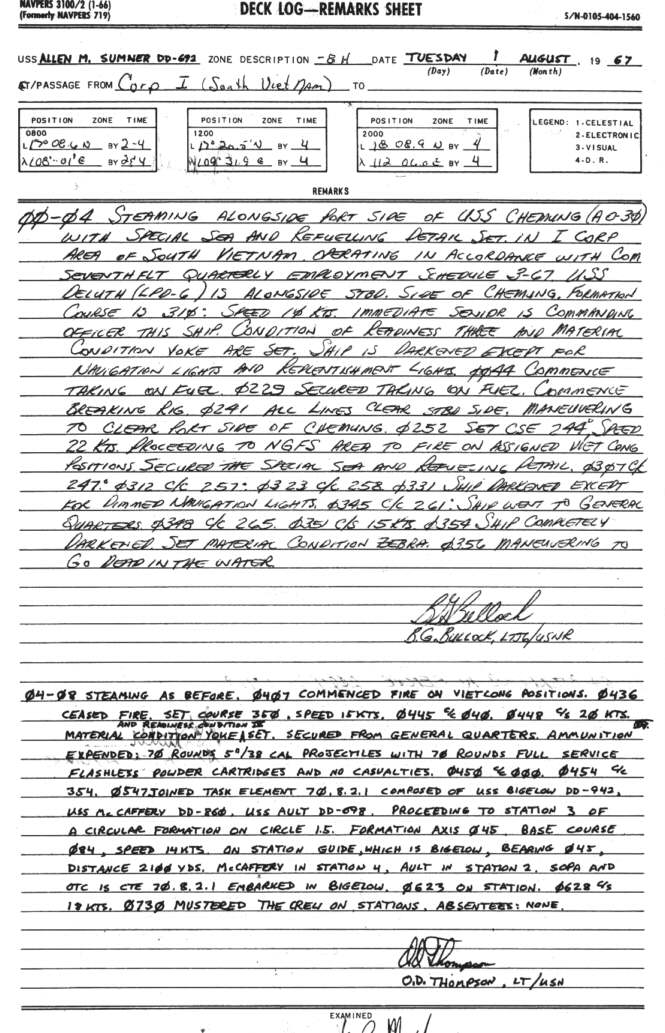 NAVPERS 3100/2 (1-66)
(Formerly NAVPERS 719)
DECK LOG—REMARKS SHEET
S/N-0105-404-1560
USS ALLEN M. SUMNER DD-692 ZONE DESCRIPTION -8H DATE TUESDAY 1 AUGUST, 19 67
(Day) (Date) (Month)
AT/PASSAGE FROM Corp I (South Viet Nam) TO
POSITION ZONE TIME
0800
L 17° 08.6 N BY 2-4
λ 108°-01'E BY 2-4
POSITION ZONE TIME
1200
L 17° 20.5'N BY 4
109° 31.9 E BY 4
POSITION ZONE TIME
2000
L 18 08.9 N BY 4
λ 112 06.0 E BY 4
LEGEND: 1-CELESTIAL
2-ELECTRONIC
3-VISUAL
4-D. R.
REMARKS
ØØ-Ø4 STEAMING ALONGSIDE PORT SIDE OF USS CHEMUNG (AO-3Ø)
WITH SPECIAL SEA AND REFUELLING DETAIL SET. IN I CORP
AREA OF SOUTH VIETNAM. OPERATING IN ACCORDANCE WITH COM
SEVENTHFLT QUARTERLY EMPLOYMENT SCHEDULE 3-67. USS
DELUTH (LPD-6) IS ALONGSIDE STBD. SIDE OF CHEMUNG. FORMATION
COURSE IS 31Ø°. SPEED 1Ø KTS. IMMEDIATE SENIOR IS COMMANDING
OFFICER THIS SHIP. CONDITION OF READINESS THREE AND MATERIAL
CONDITION YOKE ARE SET. SHIP IS DARKENED EXCEPT FOR
NAVIGATION LIGHTS AND REPLENISHMENT LIGHTS. ØØ44 COMMENCE
TAKING ON FUEL. Ø229 SECURED TAKING ON FUEL. COMMENCE
BREAKING RIG. Ø241 ALL LINES CLEAR STBD SIDE. MANEUVERING
TO CLEAR PORT SIDE OF CHEMUNG. Ø252 SET CSE 244° SPEED
22 KTS. PROCEEDING TO NGFS AREA TO FIRE ON ASSIGNED VIET CONG
POSITIONS. SECURED THE SPECIAL SEA AND REFUELING DETAIL. Ø3Ø7 C/C
247.° Ø312 C/C 257° Ø323 C/C 258 Ø331 SHIP DARKENED EXCEPT
FOR DIMMED NAVIGATION LIGHTS. Ø345 C/C 261° SHIP WENT TO GENERAL
QUARTERS. Ø348 C/C 265. Ø351 C/S 15 KTS. Ø354 SHIP COMPLETELY
DARKENED. SET MATERIAL CONDITION ZEBRA. Ø356 MANEUVERING TO
GO DEAD IN THE WATER
B G Bullock
B.G. BULLOCK, LTJG/USNR
Ø4-Ø8 STEAMING AS BEFORE. Ø4Ø7 COMMENCED FIRE ON VIETCONG POSITIONS. Ø436
CEASED FIRE. SET COURSE 35Ø, SPEED 15KTS. Ø445 C/C Ø4Ø. Ø448 C/S 2Ø KTS.
AND READINESS CONDITION III
MATERIAL CONDITION YOKE SET. SECURED FROM GENERAL QUARTERS. AMMUNITION
EXPENDED: 7Ø ROUNDS 5"/38 CAL PROJECTILES WITH 7Ø ROUNDS FULL SERVICE
FLASHLESS POWDER CARTRIDGES AND NO CASUALTIES. Ø45Ø C/C ØØØ. Ø454 C/C
354. Ø547 JOINED TASK ELEMENT 7Ø.8.2.1 COMPOSED OF USS BIGELOW DD-942,
USS McCAFFERY DD-86Ø, USS AULT DD-698. PROCEEDING TO STATION 3 OF
A CIRCULAR FORMATION ON CIRCLE 1.5. FORMATION AXIS Ø45. BASE COURSE
Ø84, SPEED 14KTS. ON STATION GUIDE, WHICH IS BIGELOW, BEARING Ø45,
DISTANCE 21ØØ YDS. McCAFFERY IN STATION 4, AULT IN STATION 2. SOPA AND
OTC IS CTE 7Ø.8.2.1 EMBARKED IN BIGELOW. Ø623 ON STATION. Ø628 C/S
18 KTS. Ø73Ø MUSTERED THE CREW ON STATIONS. ABSENTEES: NONE.
O D Thompson
O.D. THOMPSON, LT/USN
EXAMINED